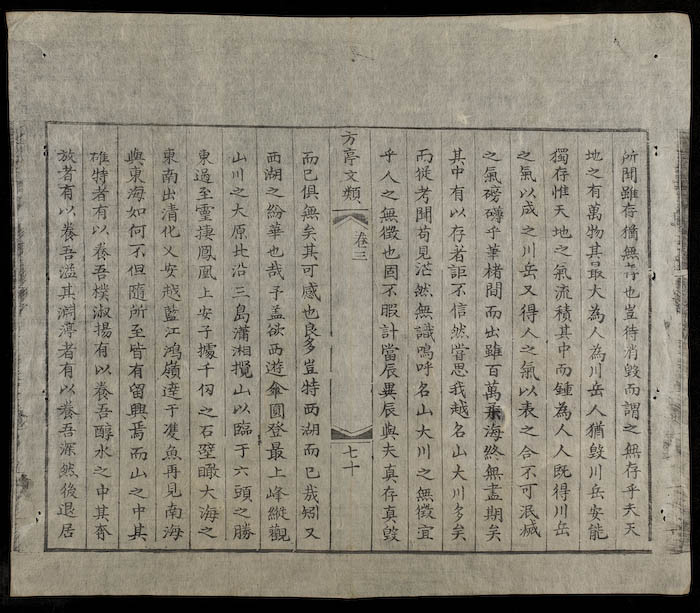 所聞雖存猶無存也豈待消毀而謂之無存乎夫天
地之有萬物其最大為人為川岳人猶毀川岳安能
獨存惟天地之氣流積其中而鍾為人人既得川岳
之氣以成之川岳又得人之氣以表之合不可泯滅
之氣磅礴乎華楮間而出雖百萬桑海終無盡期矣
其中有以存者詎不信然嘗思我越名山大川多矣
而從考聞苟見茫然無識嗚呼名山大川之無徵宜
乎人之無徵也固不暇計當辰異辰與夫真存真毀
方亭文類
卷三
七十
而已俱無矣其可感也良多豈特西湖而已哉矧又
西湖之紛華也哉予盖欲西遊傘圓登最上峰縱觀
山川之大原比沿三島瀟湘攬山以臨于六頭之勝
東過至靈捷鳳凰上安子據千仞之石壁瞰大海之
東南出清化乂安越藍江鴻嶺達于雙魚再見南海
與東海如何不但隨所至皆有留興焉而山之中其
雄特者有以養吾樸淑揚有以養吾醇水之中其奔
放者有以養吾滋其淵渟者有以養吾深然後退居